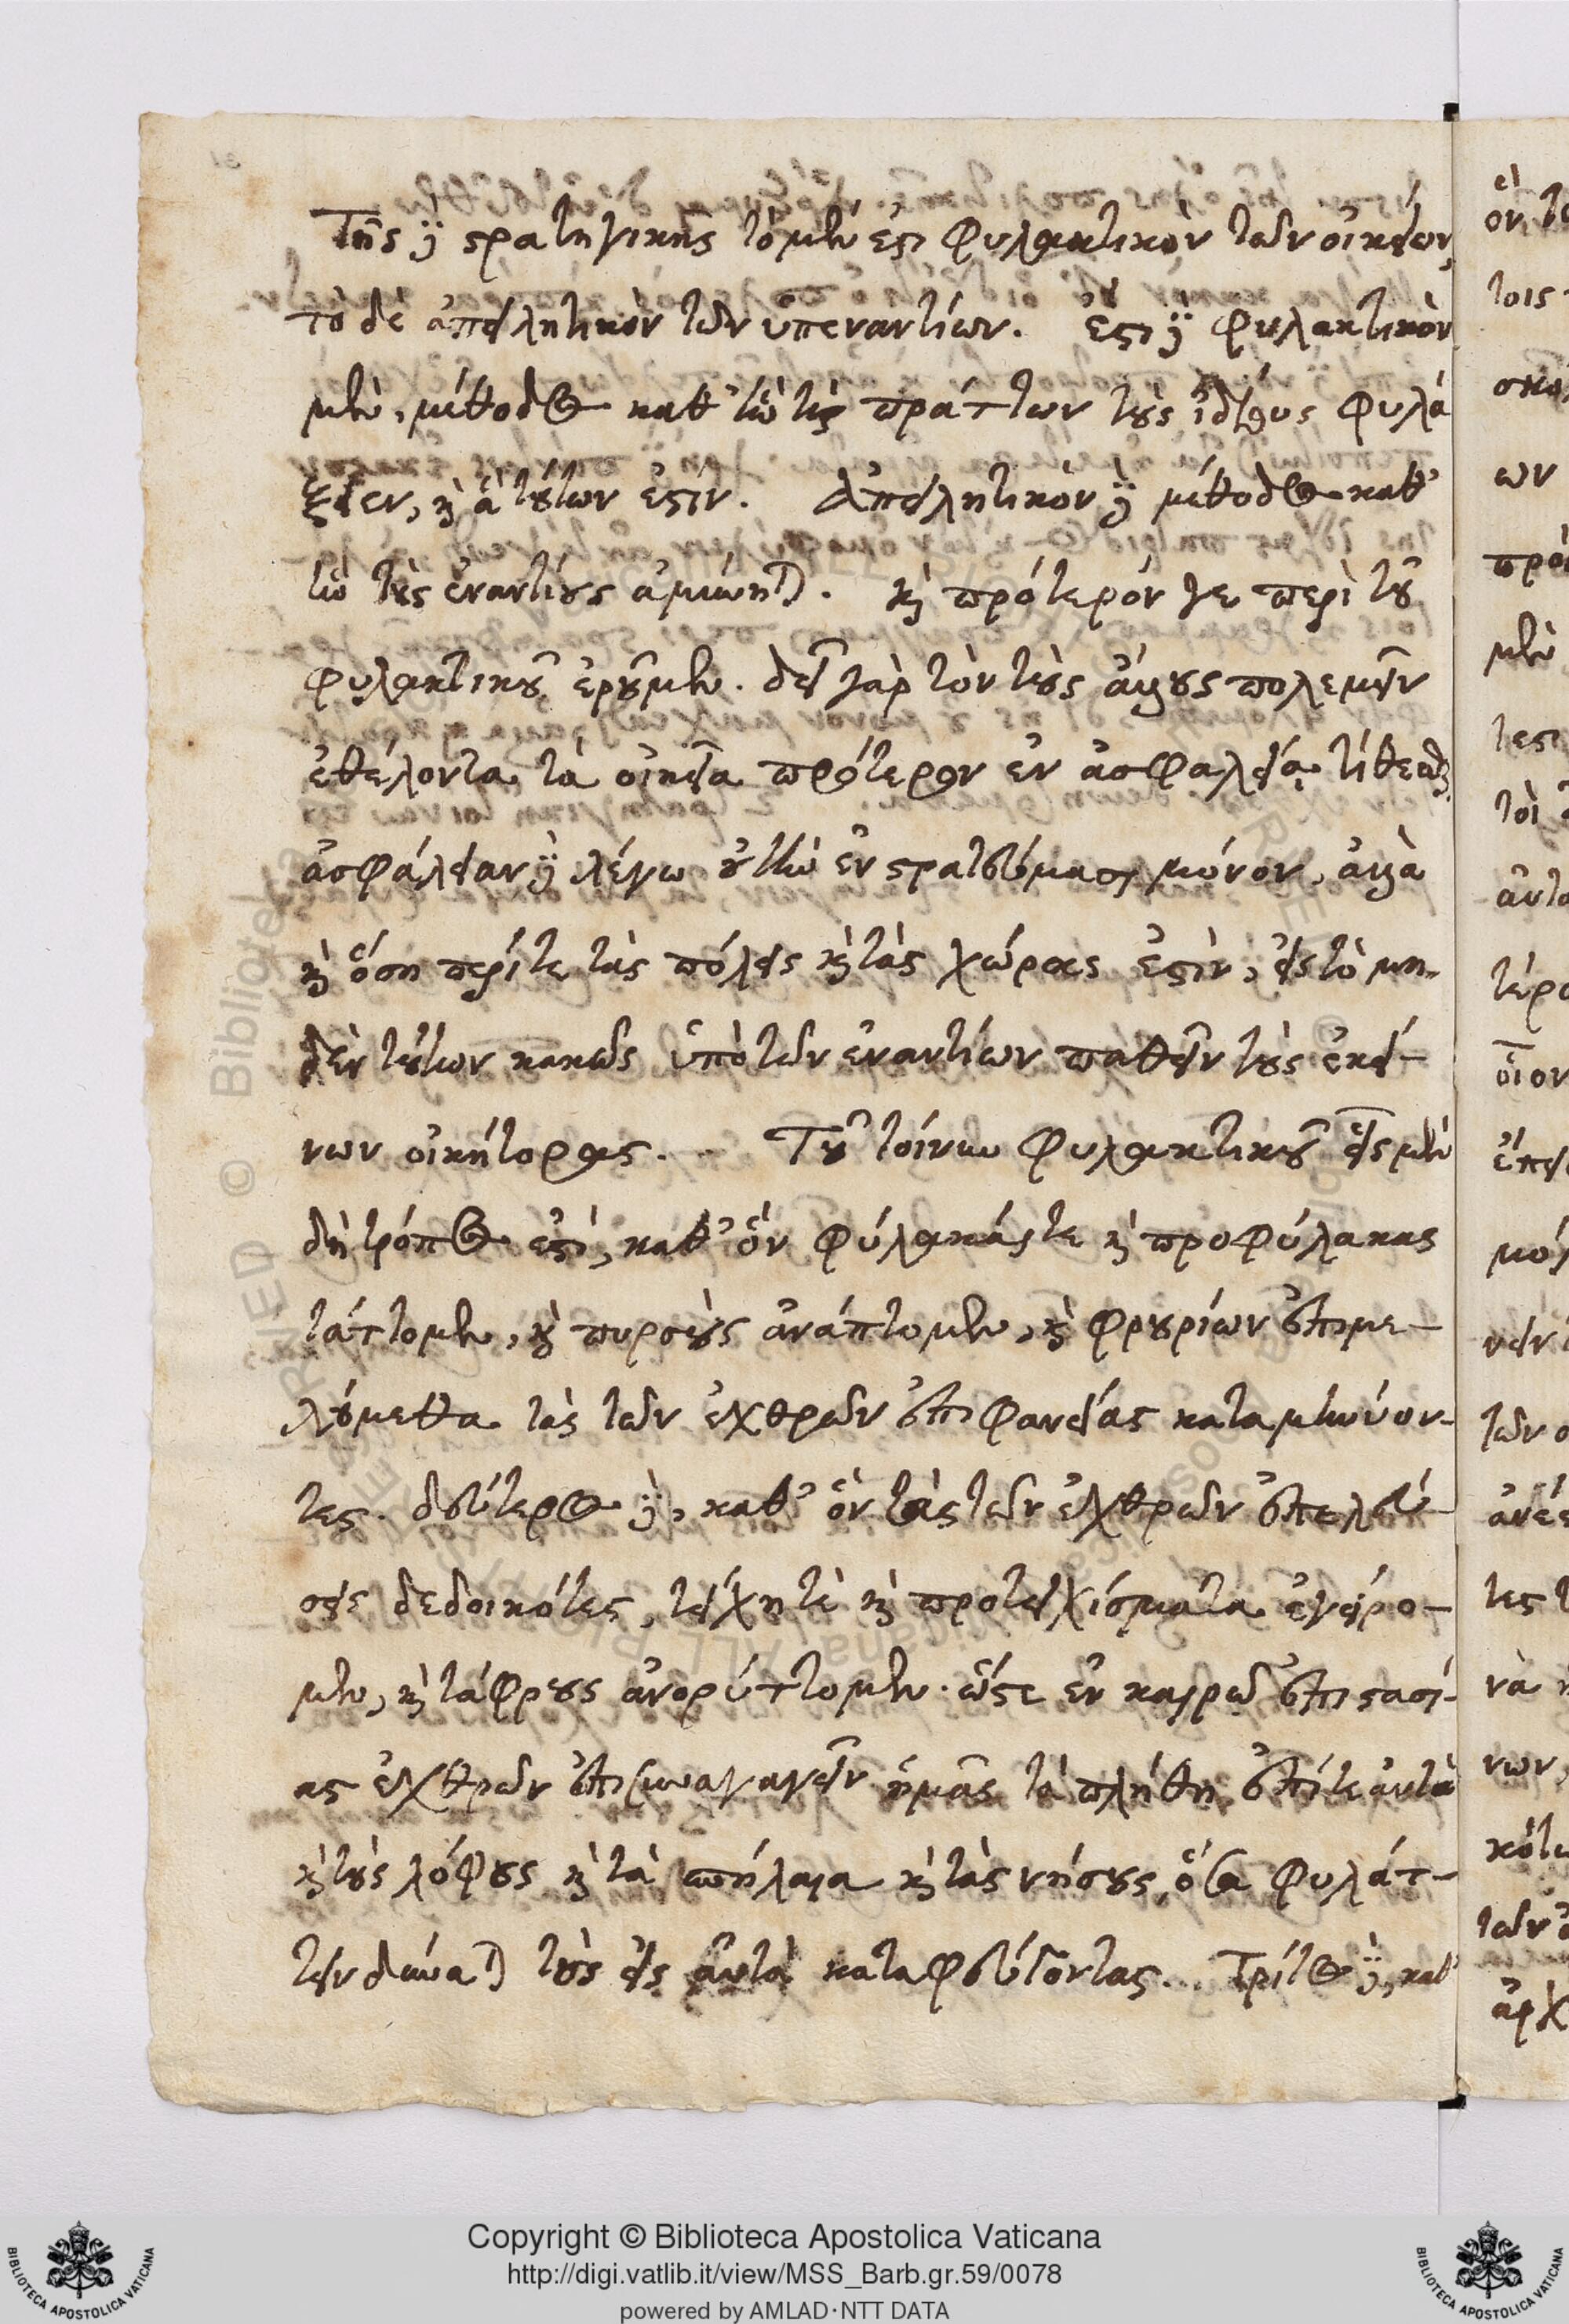 Τῆς δὲ στρατηγικῆς τὸ μέν ἐστι φυλακτικὸν τῶν οἰκείων,
τὸ δὲ ἀπειλητικὸν τῶν ὑπεναντίων. ἔστι δὲ φυλακτικὸν
μὲν, μέθοδος καθ' ἣν τὶς πράττων τοὺς ἰδίους φυλά
ξειεν, καὶ ἃ τούτων ἐστίν. Ἀπειλητικὸν δὲ μέθοδος καθ'
ἣν τοὺς ἐναντίους ἀμύνηται. καὶ πρότερόν γε περὶ τοῦ
φυλακτικοῦ ἐροῦμεν. δεῖ γὰρ τὸν τοὺς ἄλλους πολεμεῖν
ἐθέλοντα τὰ οἰκεῖα πρότερον ἐν ἀσφαλείᾳ τίθεσθαι.
ἀσφάλειαν δὲ λέγω οὐ τὴν ἐν στρατεύμασι μόνον, ἀλλὰ
καὶ ὅση περί τε τὰς πόλεις καὶ τὰς χώρας ἐστὶν, εἰς τὸ μη-
δὲν τούτων κακῶς ὑπὸ τῶν ἐναντίων παθεῖν τοὺς ἐκεί-
νων οἰκήτορας. Τοῦ τοίνυν φυλακτικοῦ εἷς μὲν
δὴ τρόπος ἐστί, καθ' ὃν φύλακάς τε καὶ προφύλακας
τάττομεν, καὶ πυρσοὺς ἀνάπτομεν, καὶ φρουρίων ἐπιμε-
λούμεθα τὰς τῶν ἐχθρῶν ἐπιφανείας καταμηνύον-
τες. δεύτερος δὲ, καθ' ὃν τὰς τῶν ἐχθρῶν ἐπελεύ-
σεις δεδοικότες, τείχη τὲ καὶ προτειχίσματα ἐγείρο-
μεν, καὶ τάφρους ἀνορύττομεν. ὥστε ἐν καιρῷ ἐπιστασί-
ας ἐχθρῶν ἐπισυναγαγεῖν ἡμᾶς τὰ πλήθη ἐπί τε αὐτὰ
καὶ τοὺς λόφους καὶ τὰ σπήλαια καὶ τὰς νήσους, ὅσα φυλάτ-
τειν δύναται τοὺς εἰς αὐτὰ καταφεύγοντας. Τρίτος δὲ, καθ'
Copyright © Biblioteca Apostolica Vaticana
http://digi.vatlib.it/view/MSS_Barb.gr.59/0078
powered by AMLAD·NTT DATA